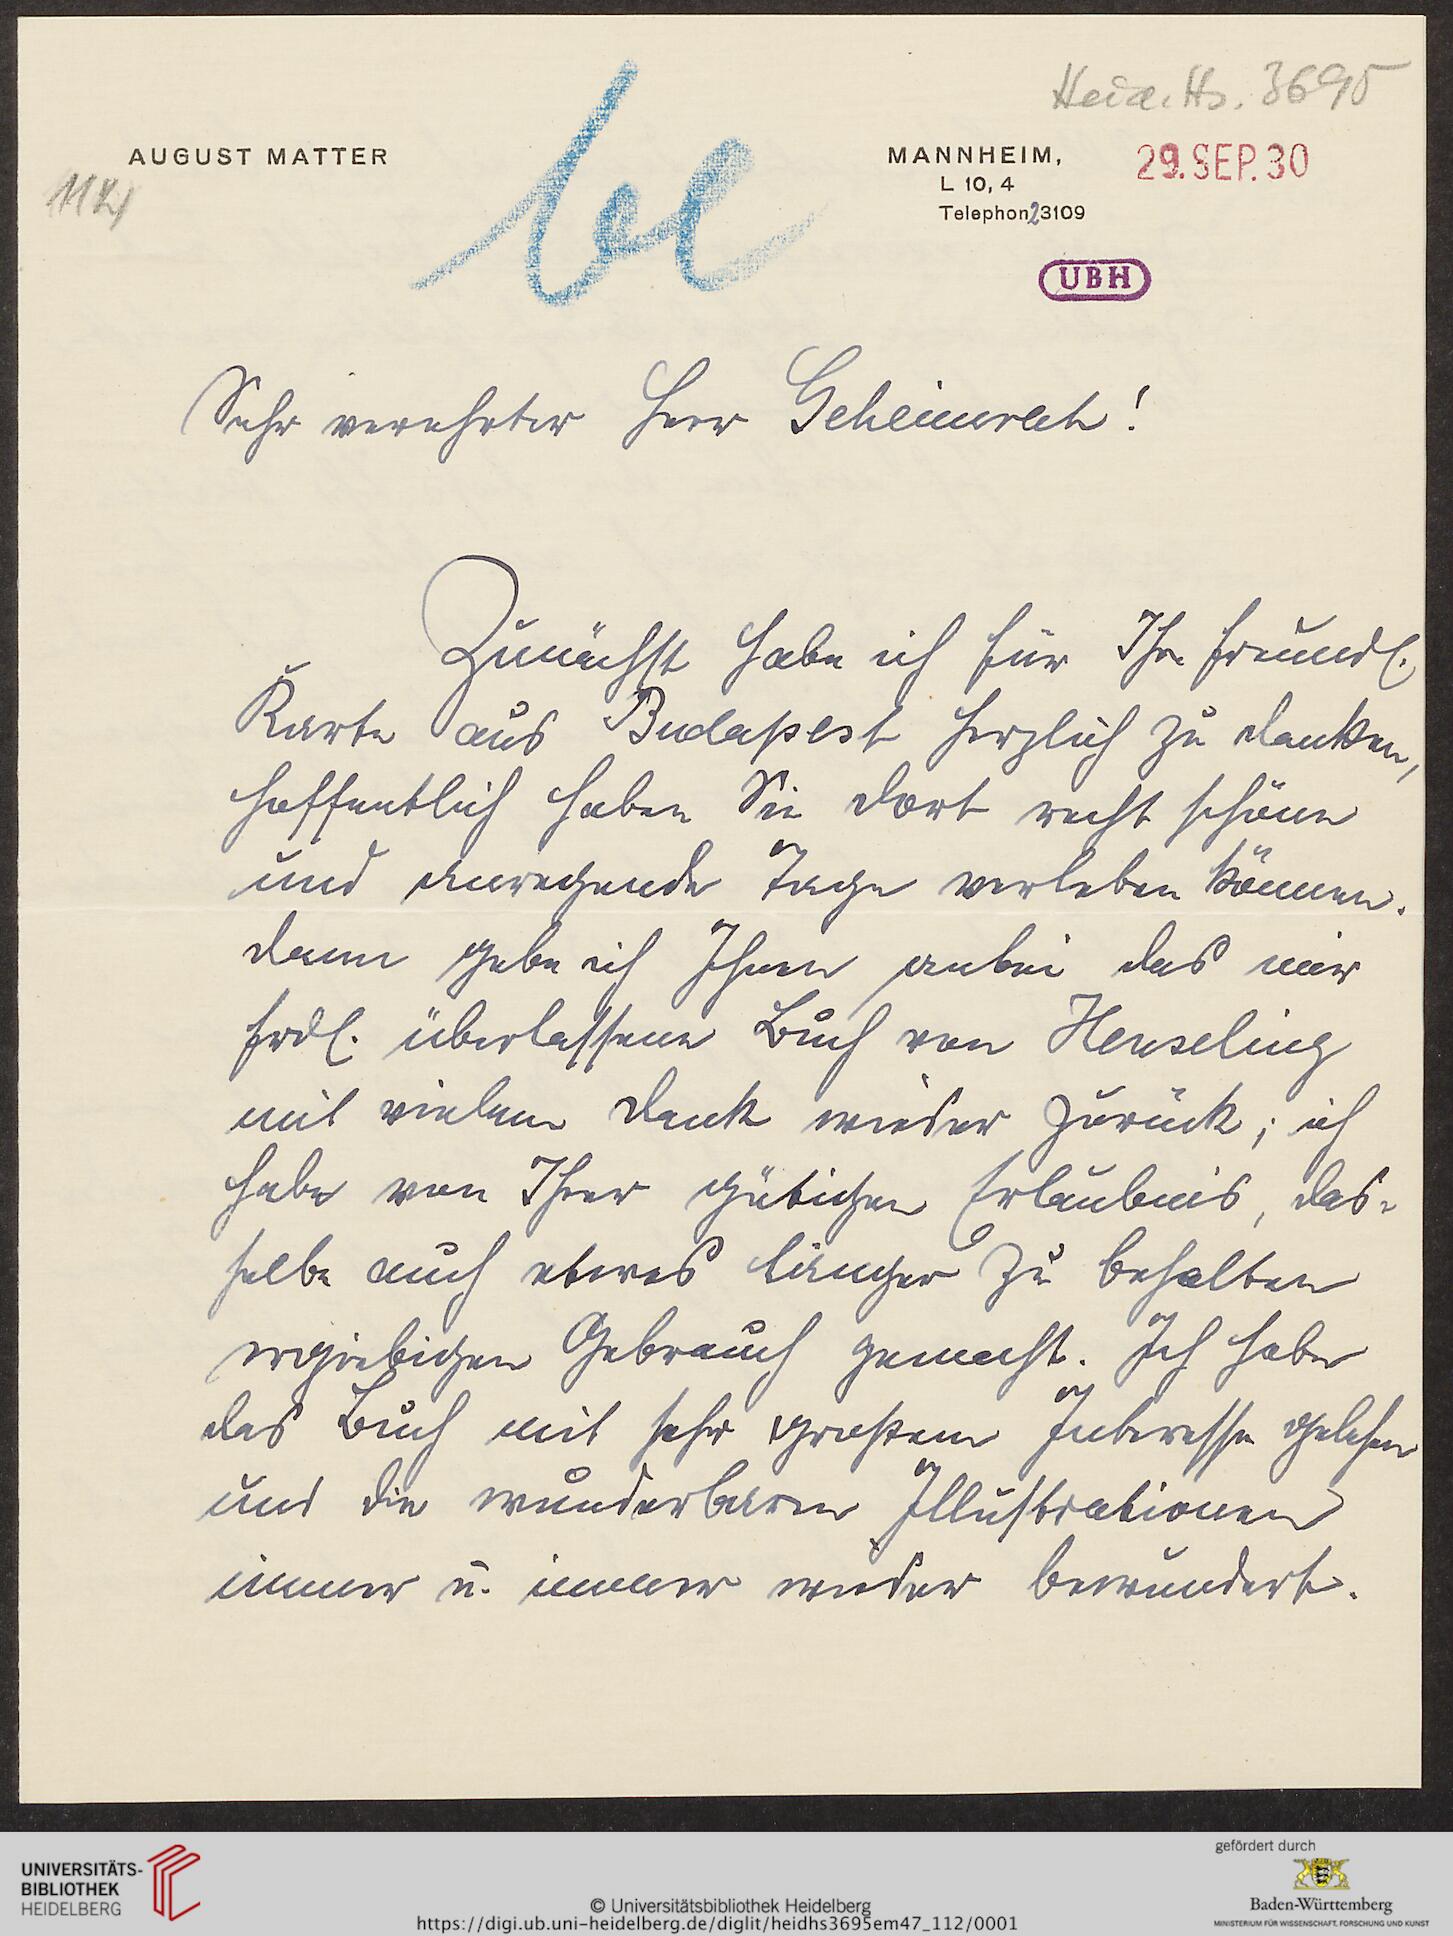 Heid. Hs. 3695
AUGUST MATTER
MANNHEIM,
29. SEP. 30
L 10, 4
Telephon 23109
112,
be
UBH
Sehr verehrter Herr Geheimrat!
Zunächst habe ich für Ihre freundl.
Karte aus Budapest herzlich zu danken,
hoffentlich haben Sie dort recht schöne
und anregende Tage verleben können.
Dann gebe ich Ihnen anbei das mir
frdl. überlassene Buch von Henseling
mit vielem Dank wieder zurück; ich
habe von Ihrer gütigen Erlaubnis, das-
selbe auch etwas länger zu behalten
ergiebigen Gebrauch gemacht. Ich habe
das Buch mit sehr großem Interesse gelesen
und die wunderbaren Illustrationen
immer u. immer wieder bewundert.
UNIVERSITÄTS-
BIBLIOTHEK
HEIDELBERG
© Universitätsbibliothek Heidelberg
https://digi.ub.uni-heidelberg.de/diglit/heidhs3695em47_112/0001
gefördert durch
Baden-Württemberg
MINISTERIUM FÜR WISSENSCHAFT, FORSCHUNG UND KUNST